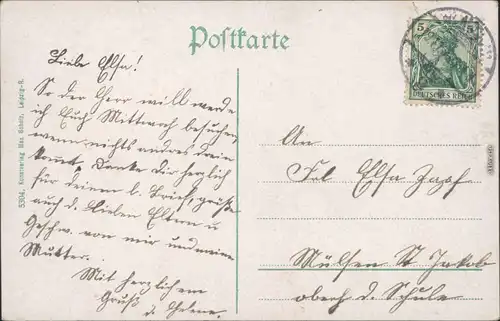 Postkarte
Liebe Elsa!
So der Herr will werde
ich Euch Mittwoch besuchen,
wenn nichts andres drein
kommt. Danke dir herzlich
für deinen l. Brief, grüße
auch d. Lieben Eltern u
Geschw. von mir und meine
Mutter.
Mit herzlichem
Gruß
d. Helene.
An
Frl Elsa Zapf
Mülsen St Jakob
oberh d. Schule
5
5
DEUTSCHES REICH
5304. Kunstverlag Leipzig-R.